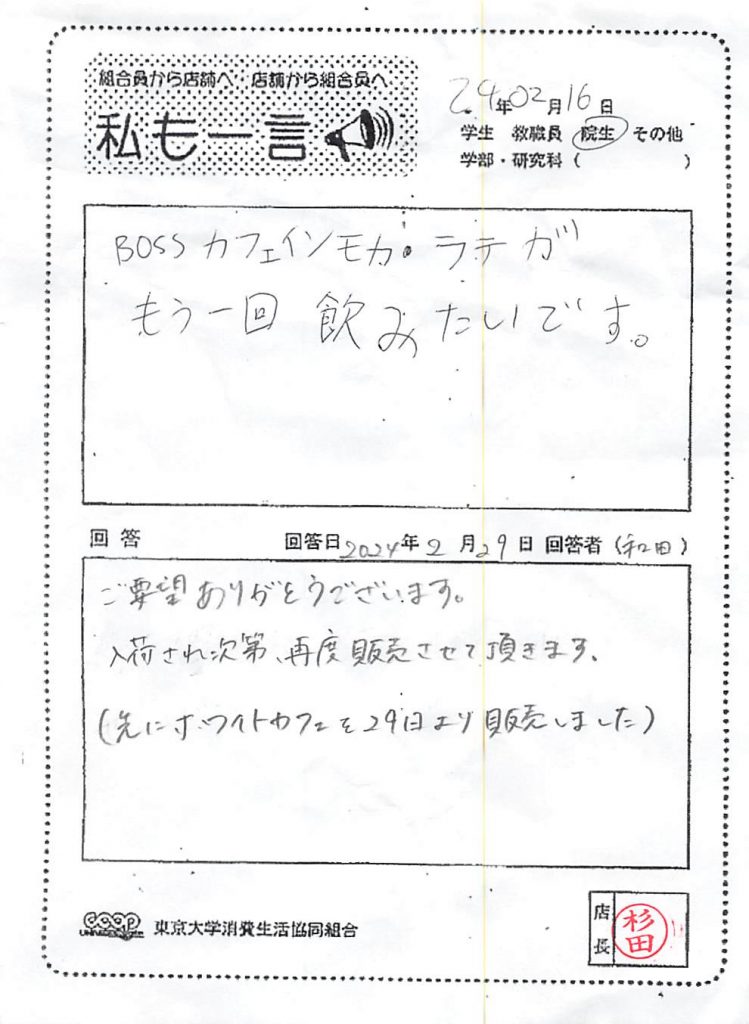 組合員から店舗へ・店舗から組合員へ
私も一言
24年02月16日
学生 教職員 院生 その他
学部・研究科( )
BOSSカフェインモカ・ラテが
もう一回飲みたいです。
回答 回答日2024年2月29日 回答者(和田)
ご要望ありがとうございます。
入荷され次第、再度販売させて頂きます。
(先にホワイトカフェを29日より販売しました)
coop 東京大学消費生活協同組合
店長 杉田